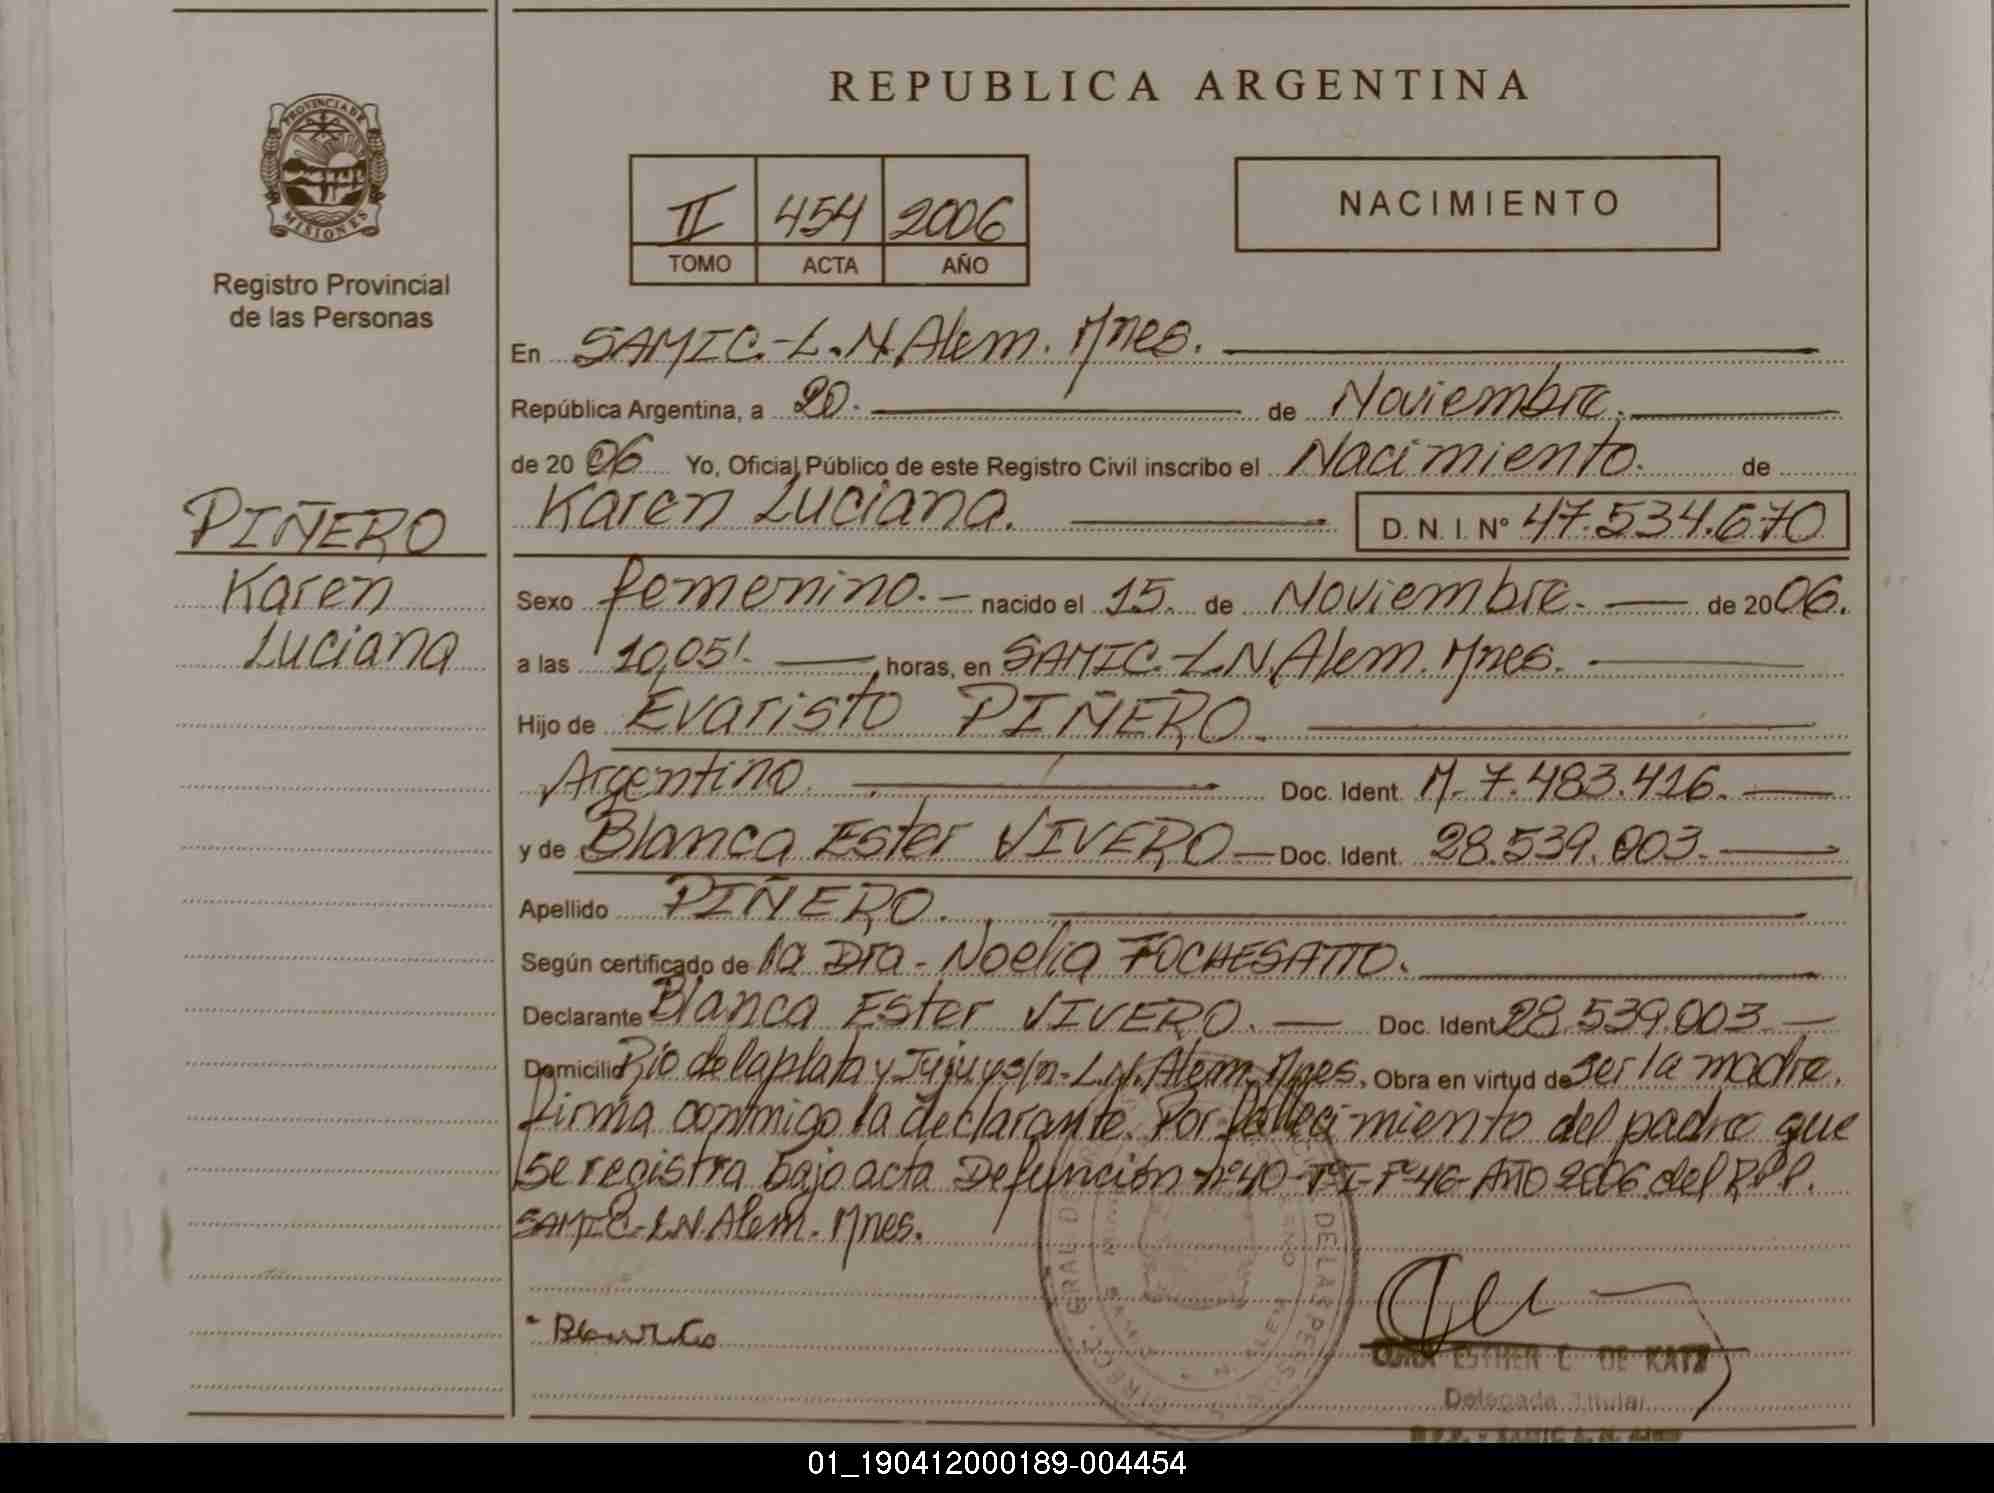 REPUBLICA ARGENTINA
PROVINCIA DE
MISIONES
Registro Provincial
de las Personas
II 454 2006
TOMO ACTA AÑO
NACIMIENTO
En SAMIC.-L.N.Alem. Mnes.
República Argentina, a 20. de Noviembre.
de 2006 Yo, Oficial Público de este Registro Civil inscribo el Nacimiento. de
Karen Luciana. D. N. I. Nº 47.534.670
PIÑERO
Karen
Luciana
Sexo femenino.- nacido el 15. de Noviembre. de 2006.
a las 10,05'. horas, en SAMIC.-L.N.Alem. Mnes.
Hijo de Evaristo PIÑERO.
Argentino. Doc. Ident. M. 7.483.416.
y de Blanca Ester VIVERO Doc. Ident. 28.539.003.
Apellido PIÑERO.
Según certificado de la Dra. Noelia FOCHESATTO.
Declarante Blanca Ester VIVERO. Doc. Ident 28.539.003.
Domicilio Río de la plata y Jujuy s/n-L.N.Alem. Mnes. Obra en virtud de ser la madre.
firma conmigo la declarante. Por fallecimiento del padre que
se registra bajo acta Defunción nº40-TºI-Fº46-AÑO 2006 del R.P.P.
SAMIC-L.N.Alem. Mnes.
ESTHER C. DE KATZ
Delegada Titular
01_190412000189-004454